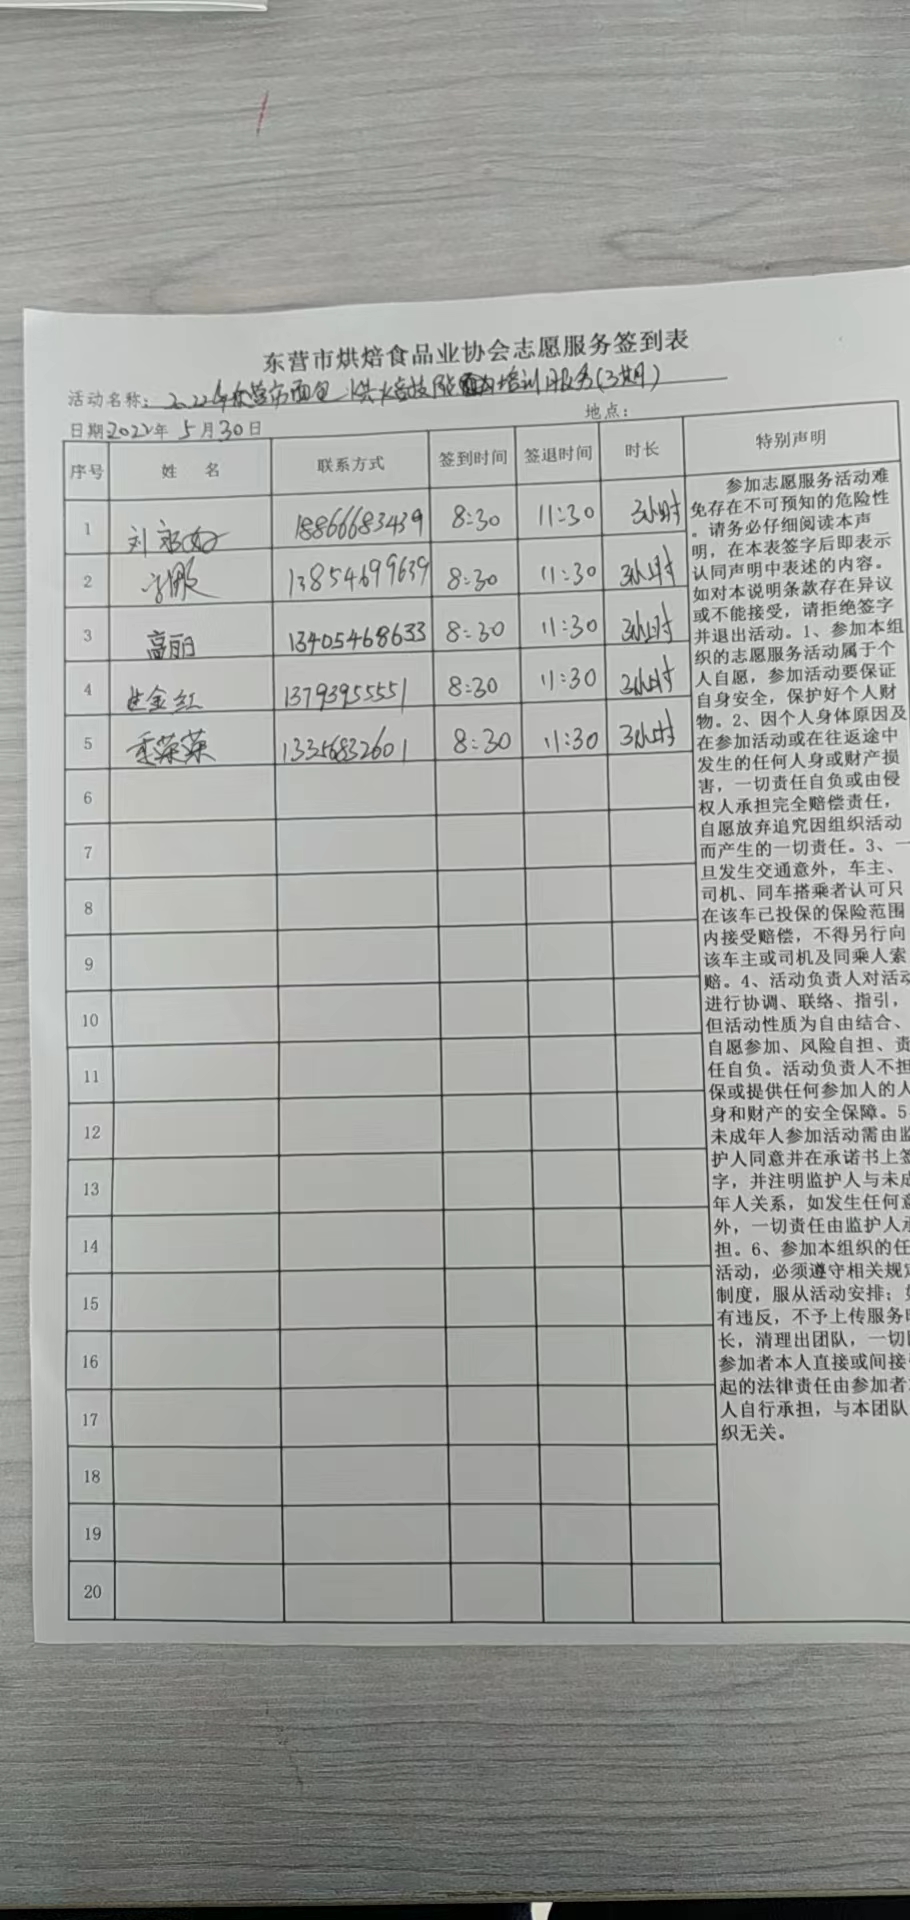 东营市烘焙食品业协会志愿服务签到表
活动名称：2022年东营市面包烘焙技能培训服务(3期)
日期2022年5月30日 地点：
序号 姓 名 联系方式 签到时间 签退时间 时长 特别声明
1 刘 18866683439 8:30 11:30 3小时
2 13854699639 8:30 11:30 3小时
3 高丽 13405468633 8:30 11:30 3小时
4 金红 13793955551 8:30 11:30 3小时
5 13256832601 8:30 11:30 3小时
6
7
8
9
10
11
12
13
14
15
16
17
18
19
20
参加志愿服务活动难
免存在不可预知的危险性
。请务必仔细阅读本声
明，在本表签字后即表示
认同声明中表述的内容。
如对本说明条款存在异议
或不能接受，请拒绝签字
并退出活动。1、参加本组
织的志愿服务活动属于个
人自愿，参加活动要保证
自身安全，保护好个人财
物。2、因个人身体原因及
在参加活动或在往返途中
发生的任何人身或财产损
害，一切责任自负或由侵
权人承担完全赔偿责任，
自愿放弃追究因组织活动
而产生的一切责任。3、一
旦发生交通意外，车主、
司机、同车搭乘者认可只
在该车已投保的保险范围
内接受赔偿，不得另行向
该车主或司机及同乘人索
赔。4、活动负责人对活动
进行协调、联络、指引，
但活动性质为自由结合、
自愿参加、风险自担、责
任自负。活动负责人不担
保或提供任何参加人的人
身和财产的安全保障。5
未成年人参加活动需由监
护人同意并在承诺书上签
字，并注明监护人与未成
年人关系，如发生任何意
外，一切责任由监护人承
担。6、参加本组织的任
活动，必须遵守相关规定
制度，服从活动安排；如
有违反，不予上传服务时
长，清理出团队，一切因
参加者本人直接或间接引
起的法律责任由参加者本
人自行承担，与本团队
织无关。